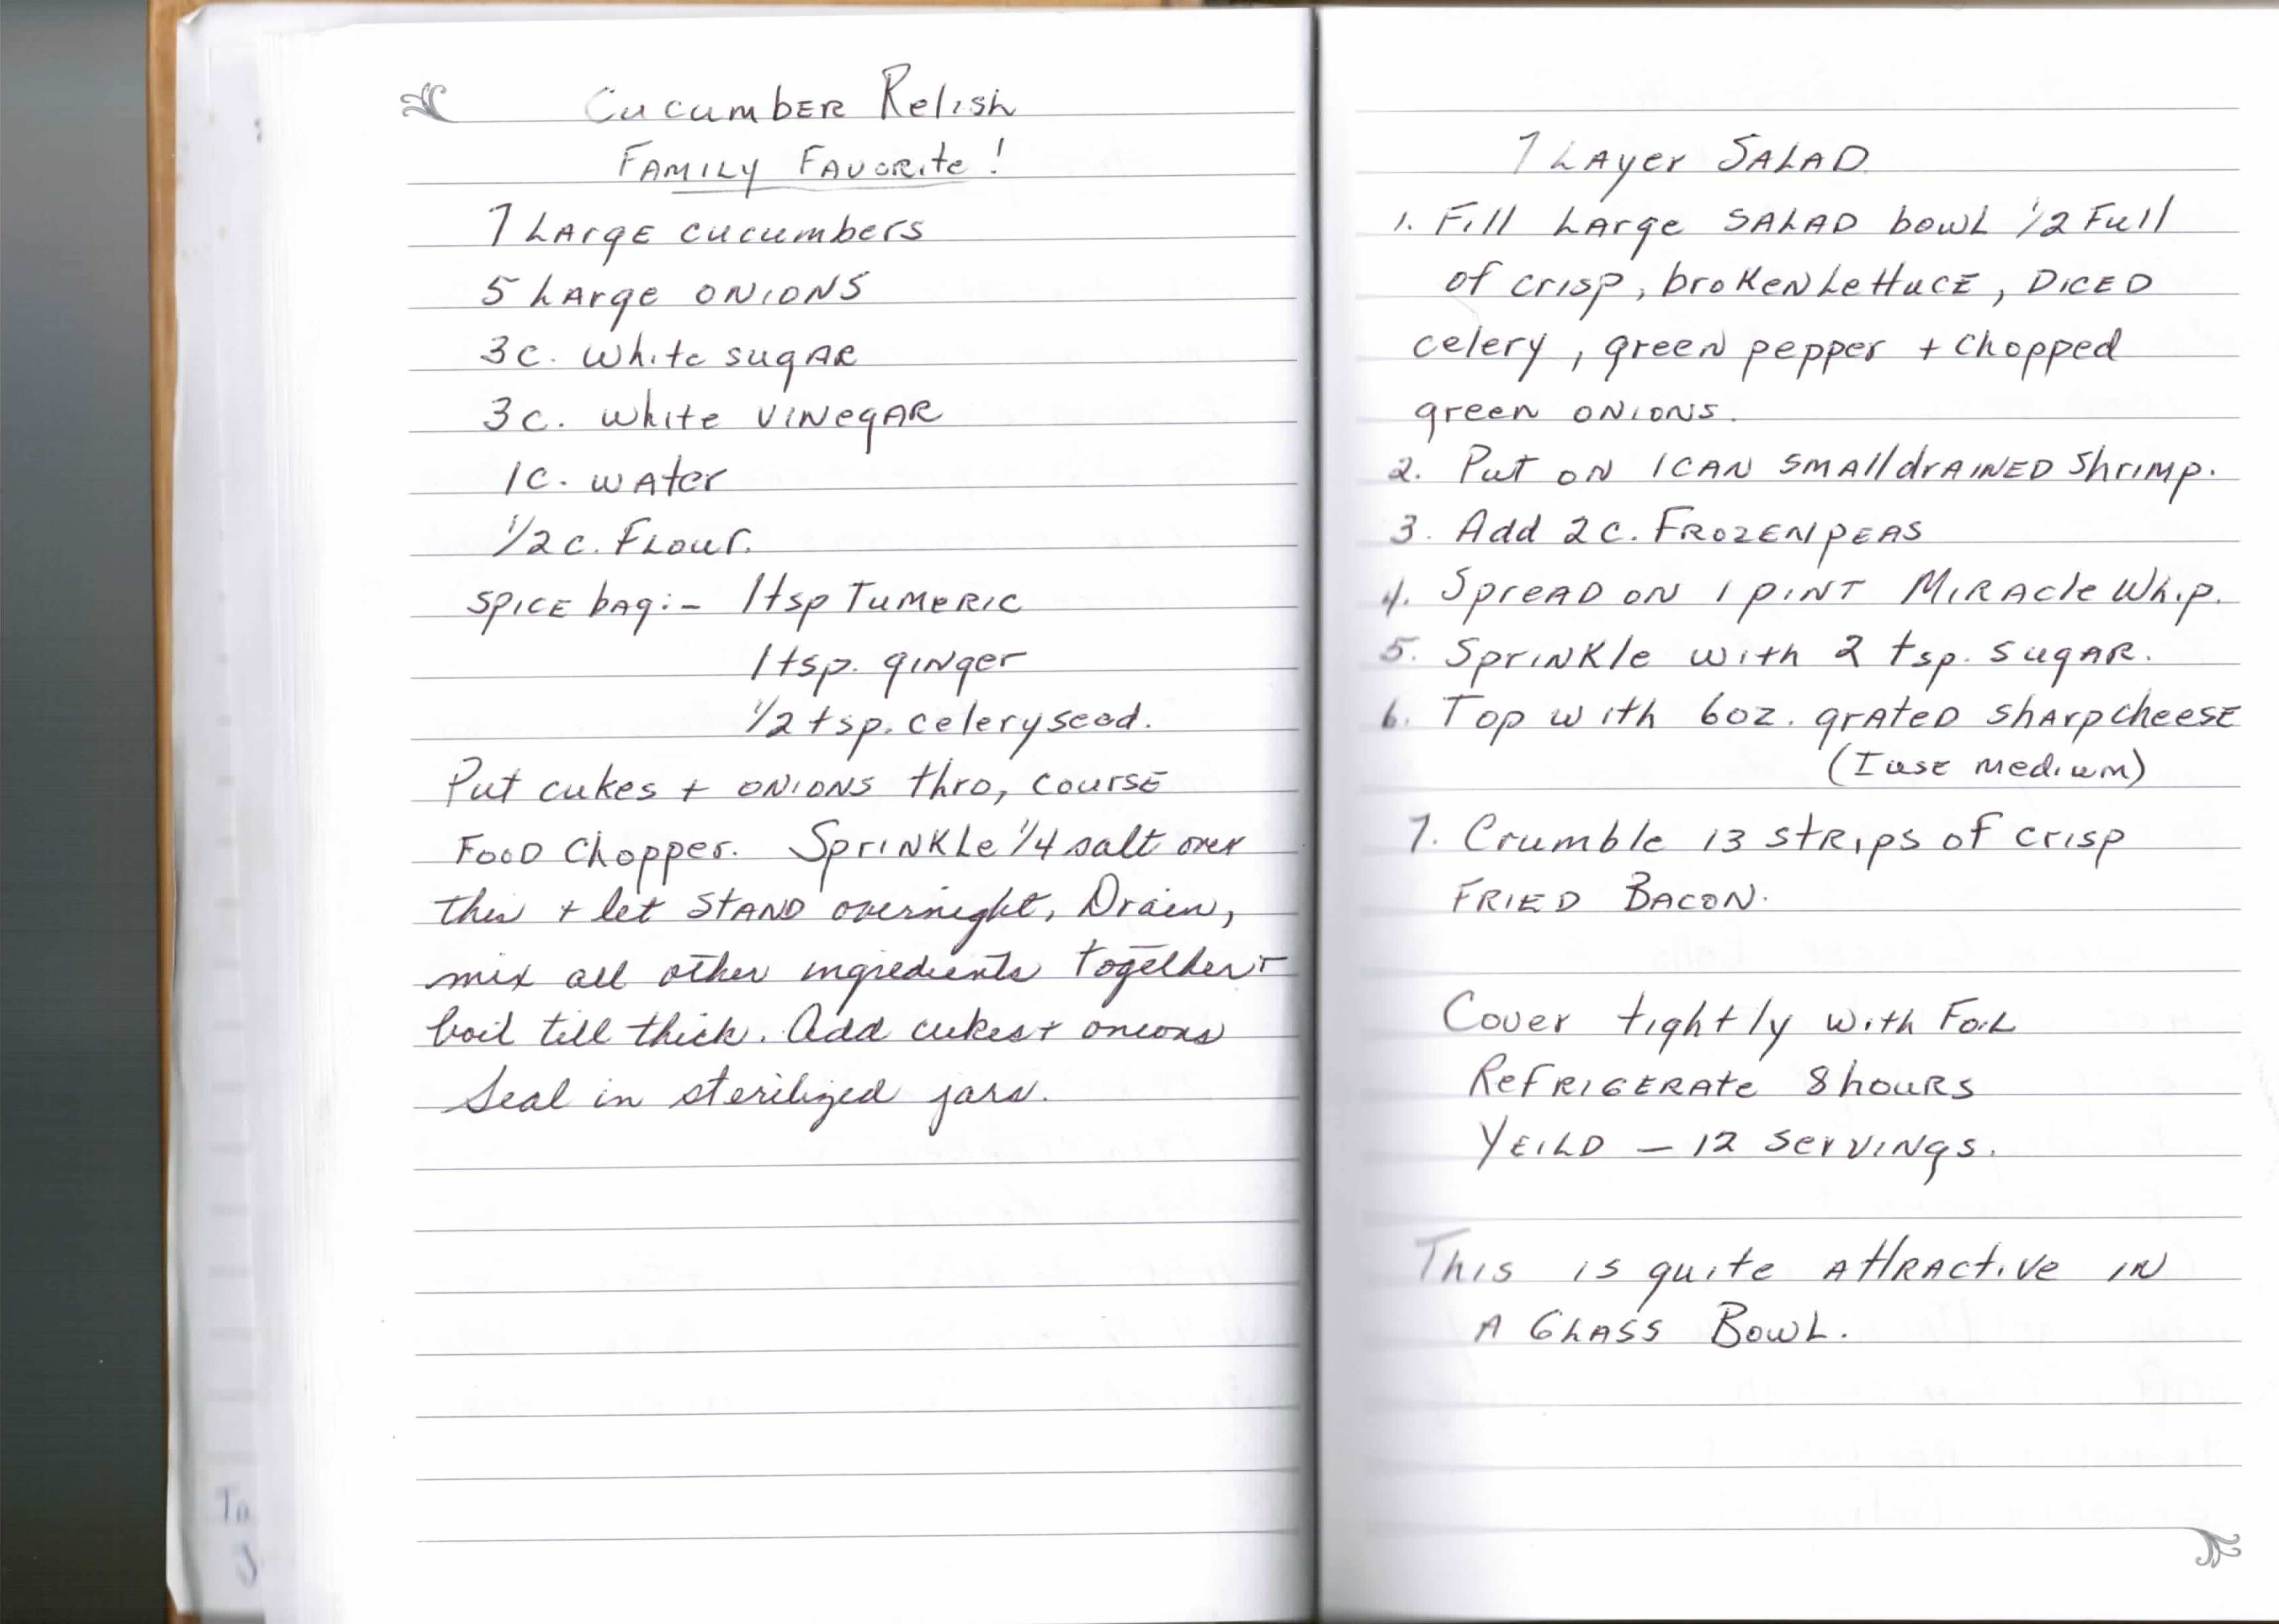 Cucumber Relish
Family Favorite!
7 Large cucumbers
5 Large onions
3c. white sugar
3c. white vinegar
1c. water
1/2 c. Flour.
spice bag:- 1tsp Tumeric
1tsp. ginger
1/2 tsp. celery seed.
Put cukes + onions thro, course
Food Chopper. Sprinkle 1/4 salt over
this + let stand overnight, Drain,
mix all other ingredients together +
boil till thick. Add cukes + onions
Seal in sterilized jars.
7 Layer Salad
1. Fill Large salad bowl 1/2 Full
of crisp, broken lettuce, diced
celery, green pepper + chopped
green onions.
2. Put on 1 can small drained shrimp.
3. Add 2 c. Frozen peas
4. Spread on 1 pint Miracle Whip.
5. Sprinkle with 2 tsp. sugar.
6. Top with 6oz. grated sharp cheese
(I use medium)
7. Crumble 13 strips of crisp
Fried Bacon.
Cover tightly with Foil
Refrigerate 8 hours
Yeild - 12 servings.
This is quite attractive in
a Glass Bowl.